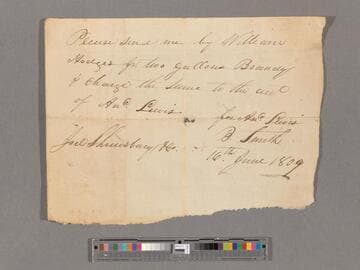 Please send me by William
Hodges for two gallons Brandy
& charge the same to the acct
of And. Lewis
for And. Lewis
B. Smith
Joel Shrewsbury & Co.
16th June 1809